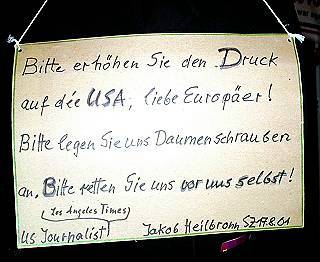 Bitte erhöhen Sie den Druck
auf die USA, liebe Europäer!
Bitte legen Sie uns Daumenschrauben
an, Bitte retten Sie uns vor uns selbst!
(Los Angeles Times)
US Journalist Jakob Heilbronn SZ 17.8.01